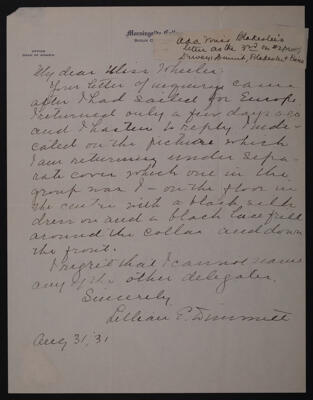 Morningside College
OFFICE
DEAN OF WOMEN
SIOUX C
Ada Louis Blakeslee's
letter as the 3rd on
Dimmitt, Blakeslee &
My dear Miss Wheeler:
Your letter of inquiry came
after I had sailed for Europe.
I returned only a few days ago
and I hasten to reply. I indi-
cated on the picture which
I am returning under sepa-
rate cover which one in the
group was I - on the floor in
the centre with a black silk
dress on and a black lace frill
around the collar and down
the front.
I regret that I cannot name
any of the other delegates.
Sincerely
Lillian E. Dimmitt
Aug 31, '31